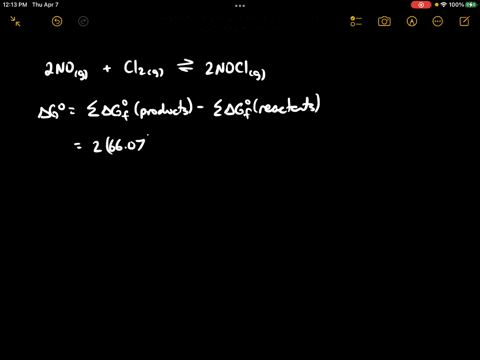 12:13 PM Thu Apr 7
100%
2NO(g) + Cl₂(g) ⇌ 2NOCl(g)
ΔG° = ΣΔG°f (products) - ΣΔG°f (reactants)
= 2(66.07